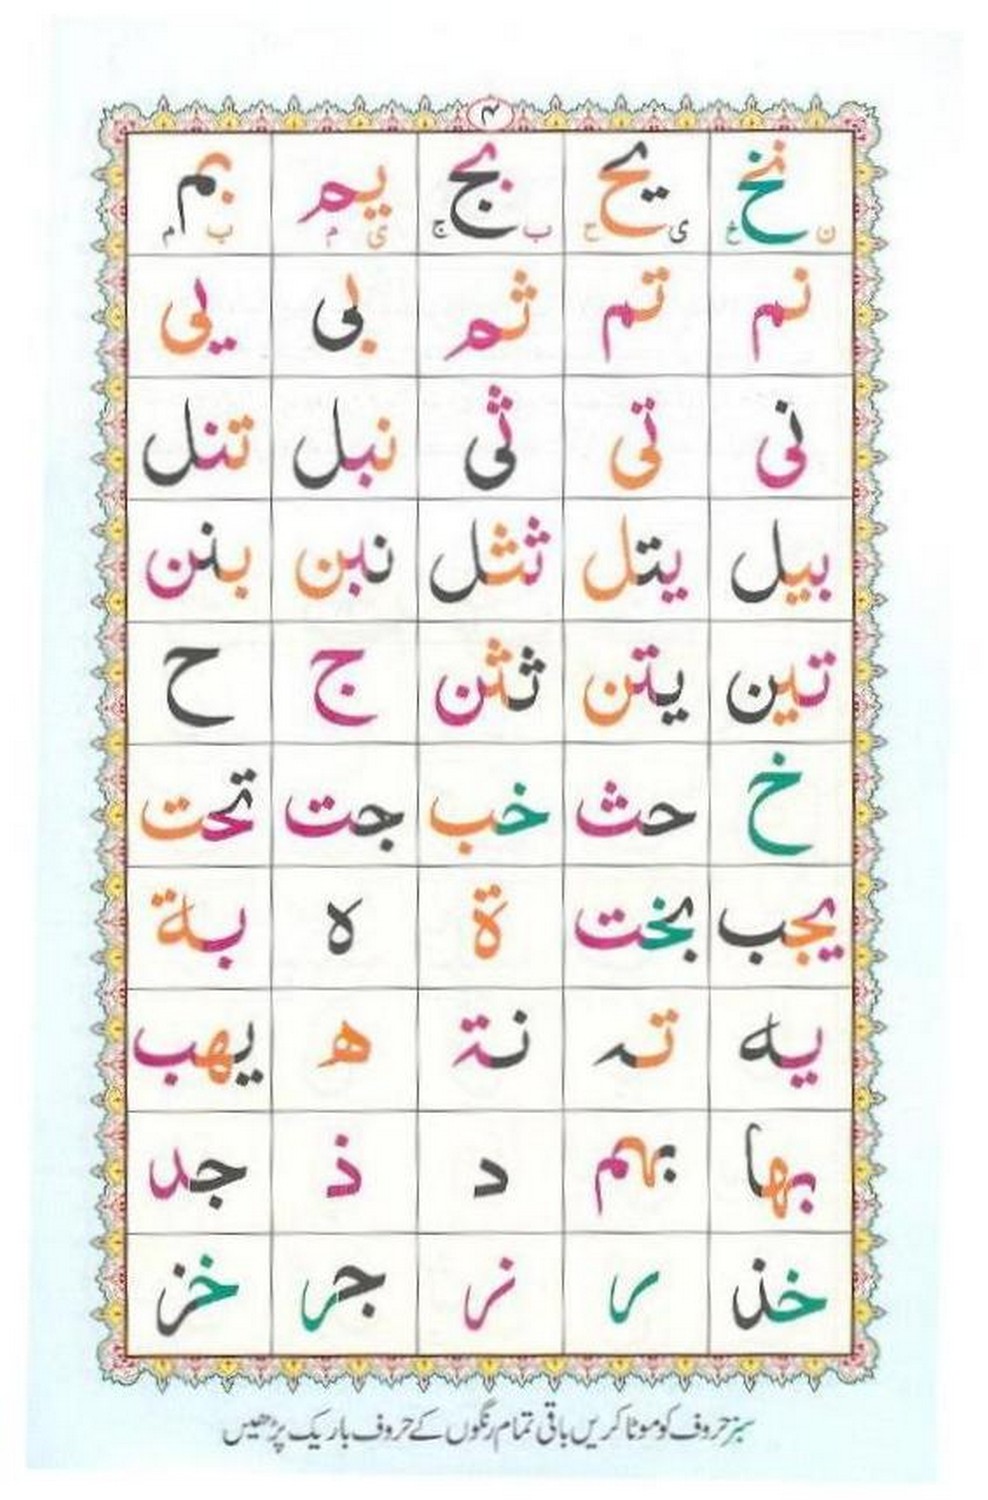 ۴
نخ یح بج یم بم
ن خ ی ح ب ج ی م ب م
نم تم ثم بی یی
نی تی ثی نبل تنل
بیل یتل ثثل نبن بنن
تین یتن ثثن ج ح
خ حث خب جت تحت
یجب بخت ة ه بة
یه ته نة ھ یهب
بها بهم د ذ جد
خذ ر نر جر خز
سبز حروف کو موٹا کریں باقی تمام رنگوں کے حروف باریک پڑھیں